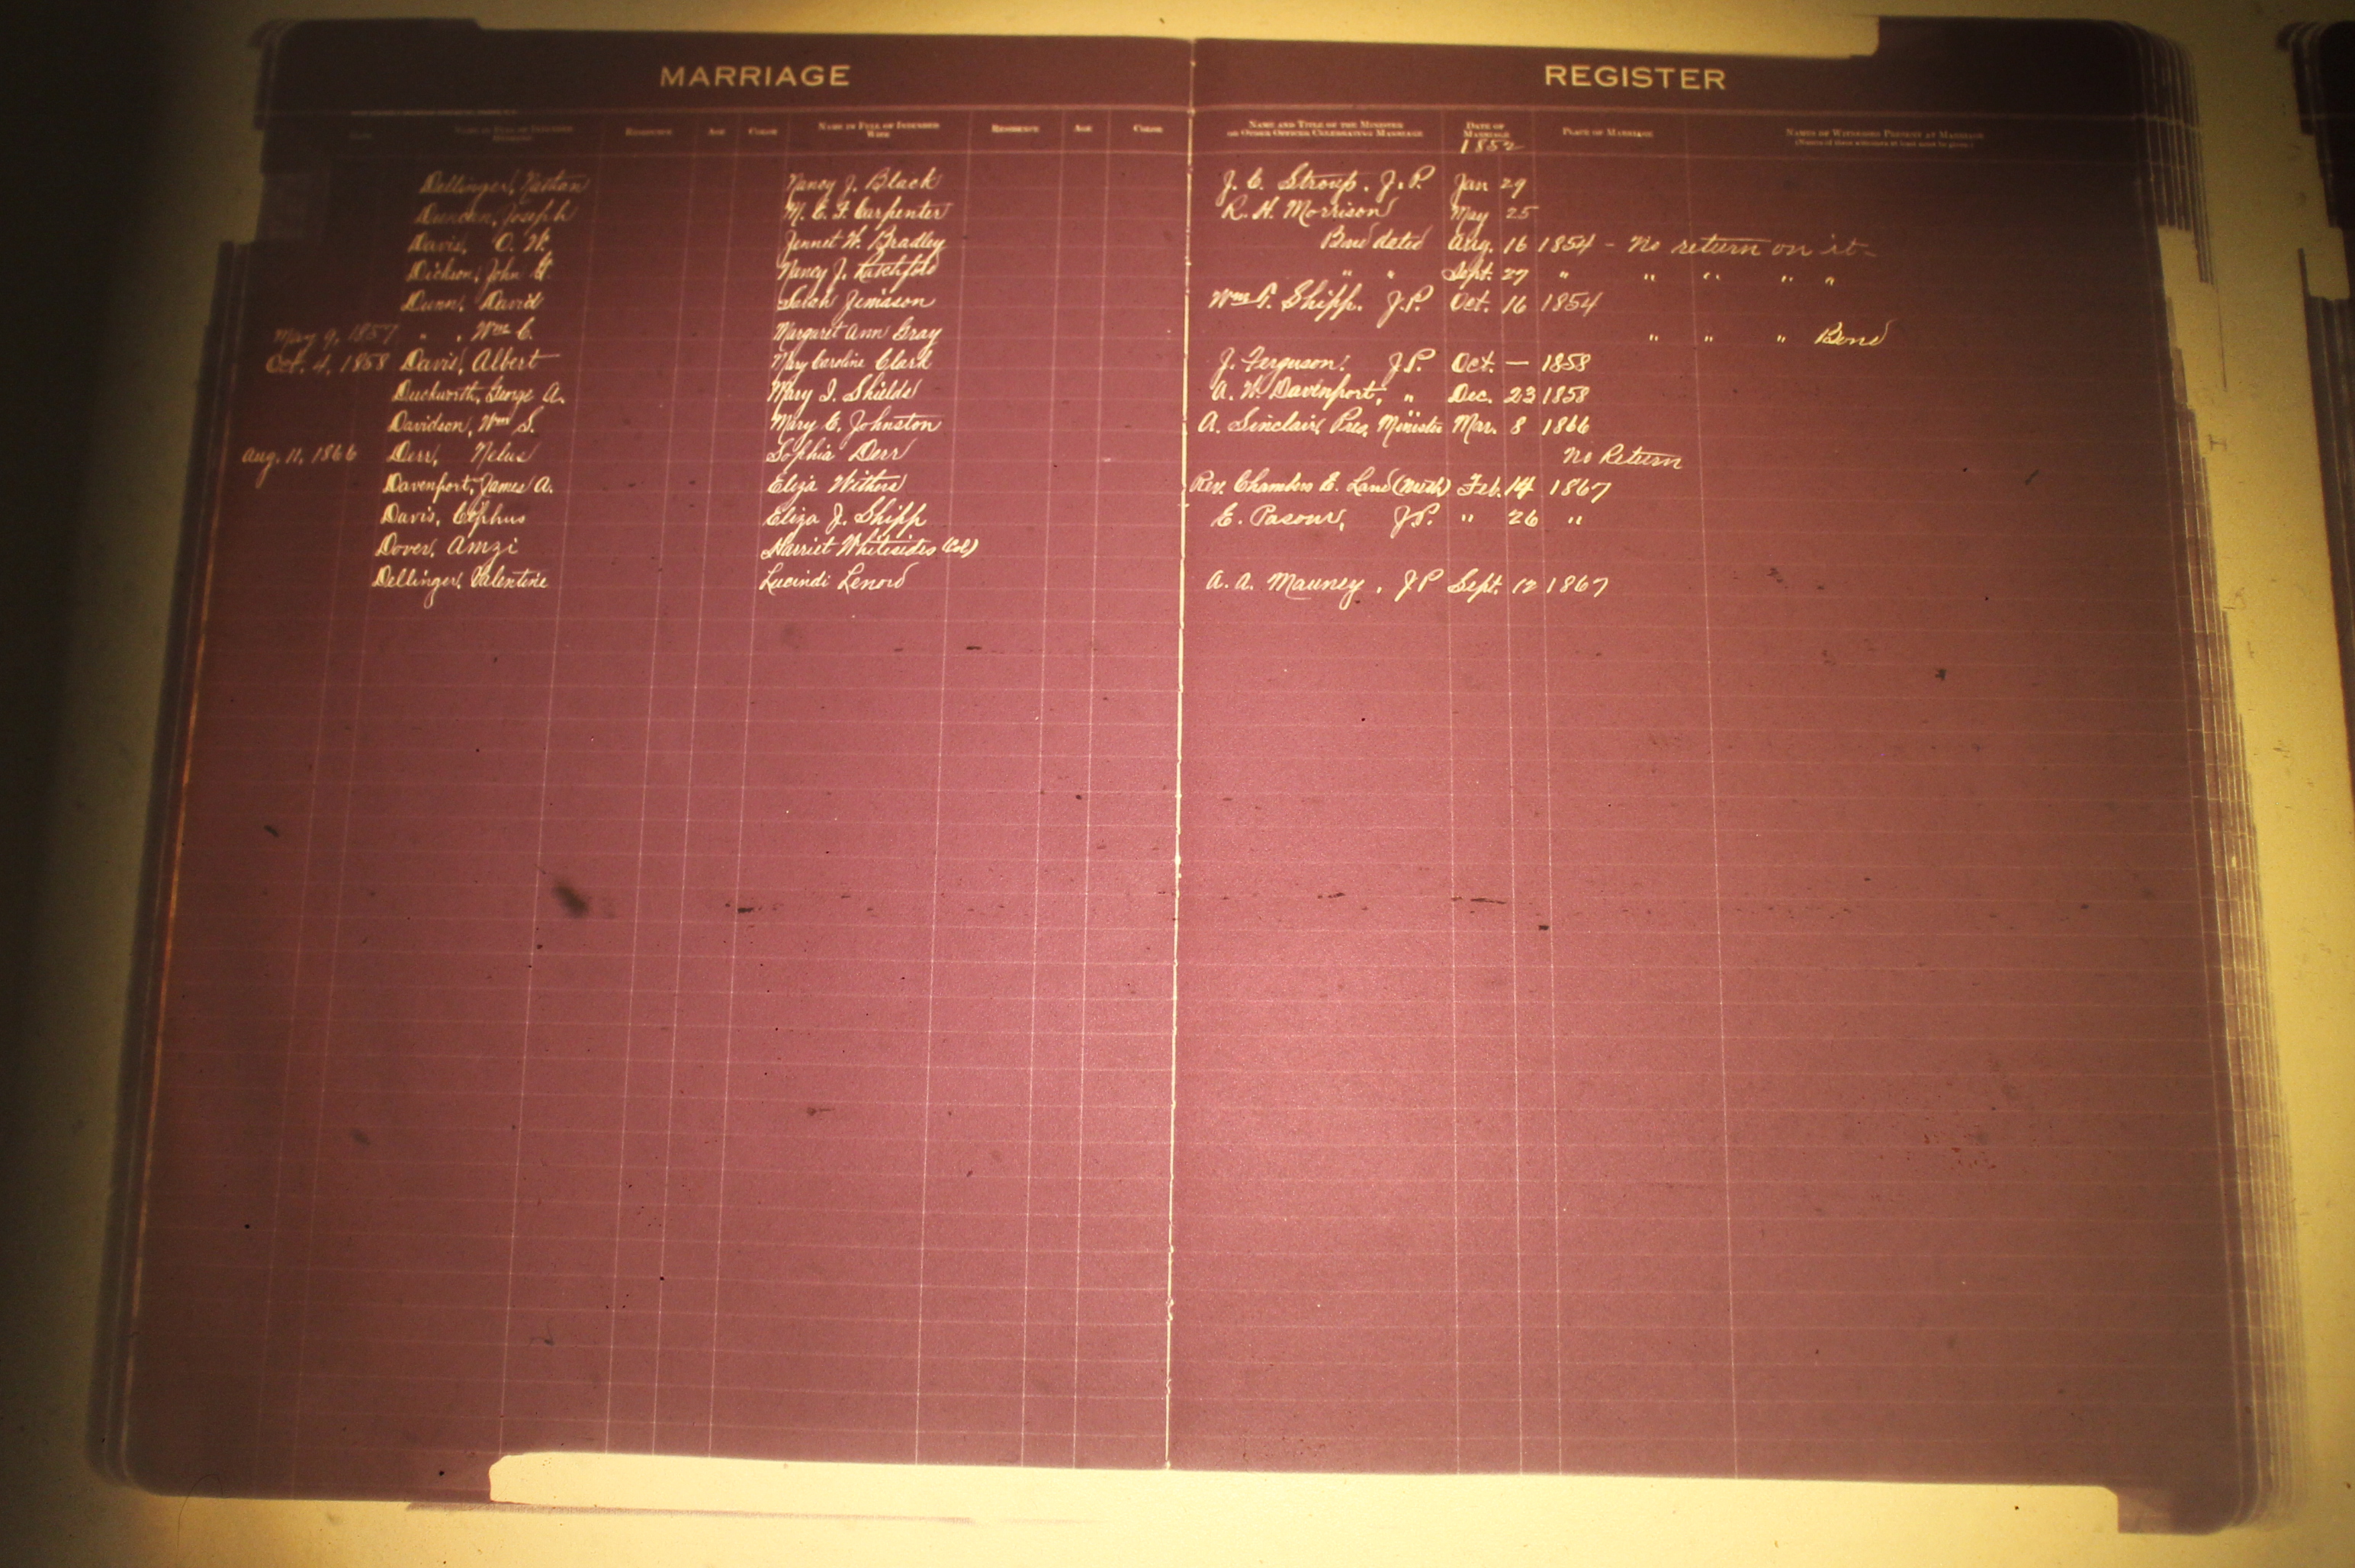 MARRIAGE REGISTER
NAME IN FULL OF INTENDED HUSBAND RESIDENCE AGE COLOR NAME IN FULL OF INTENDED WIFE RESIDENCE AGE COLOR NAME AND TITLE OF THE MINISTER OR OTHER OFFICER CELEBRATING MARRIAGE DATE OF MARRIAGE PLACE OF MARRIAGE NAMES OF WITNESSES PRESENT AT MARRIAGE
1852
Dellinger, Nancy J. Black J. C. Stroup, J.P. Jan 29
Duncan, Joseph M. C. F. Carpenter R. H. Morrison May 25
Davis, O. W. Jennet W. Bradley Bond dated Aug. 16 1854 - No return on it-
Dickson, John G. Nancy J. Ratchford " " Sept. 27 " " " " "
Dunn, David Sarah Jimason Wm T. Shipp. J.P. Oct. 16 1854
May 9, 1857 " , Wm C. Margaret Ann Gray " " " Bond
Oct. 4, 1858 Davis, Albert Mary Caroline Clark J. Ferguson. J.P. Oct. — 1858
Duckworth, George A. Mary I. Shields A. W. Davenport, " Dec. 23 1858
Davidson, Wm S. Mary C. Johnston A. Sinclair, Pres. Minister Mar. 8 1866
Aug. 11, 1866 Derr, Nelus Sophia Derr No Return
Davenport, James A. Eliza Withers Rev. Chambers E. Land (Meth) Feb. 14 1867
Davis, Cephus Eliza J. Shipp E. Pasour, J.P. " 26 "
Dover, Amzi Harriet Whitesides (Col)
Dellinger, Valentine Lucindi Lenord A. A. Mauney, J P Sept. 12 1867